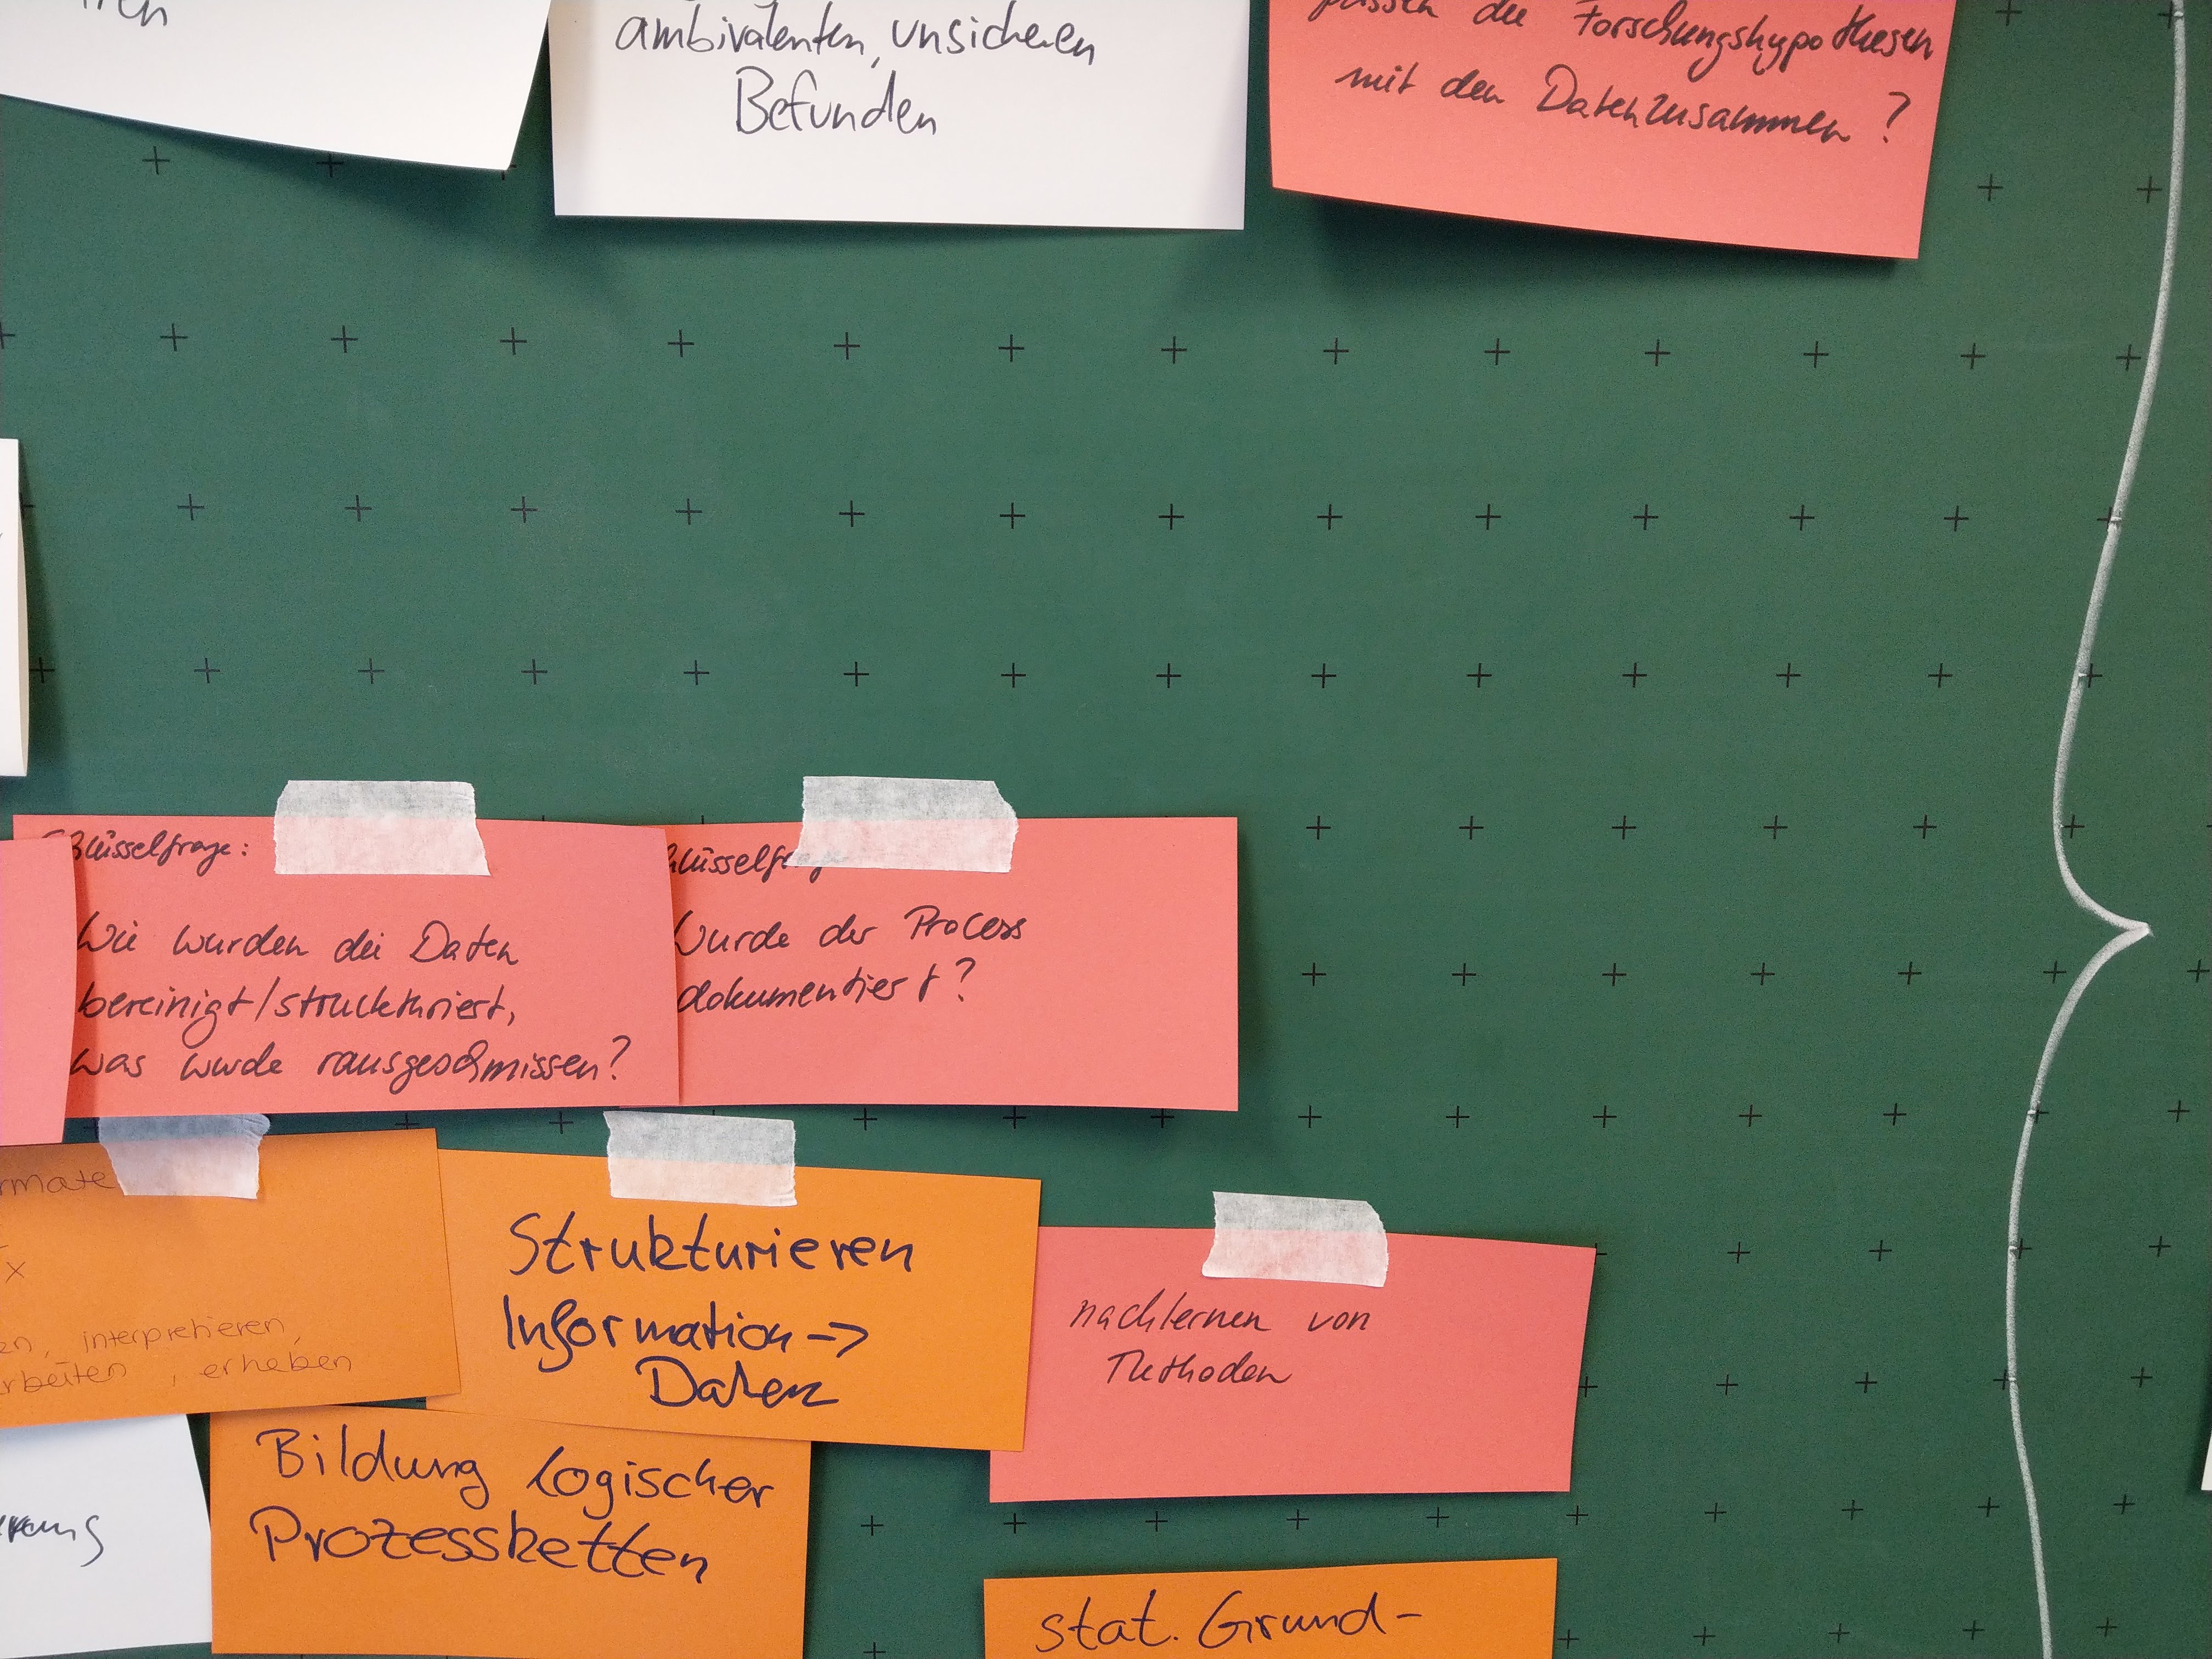 ambivalenten, unsicheren
Befunden
passen die Forschungshypothesen
mit den Daten zusammen?
Schlüsselfrage:
Wie wurden die Daten
bereinigt/strukturiert,
was wurde rausgeschmissen?
hlüsselfrage
Wurde der Process
dokumentiert?
rmate
x
en, interpretieren,
rbeiten, erheben
Strukturieren
Information->
Daten
nachlernen von
Methoden
Bildung logischer
Prozessketten
erung
stat. Grund-